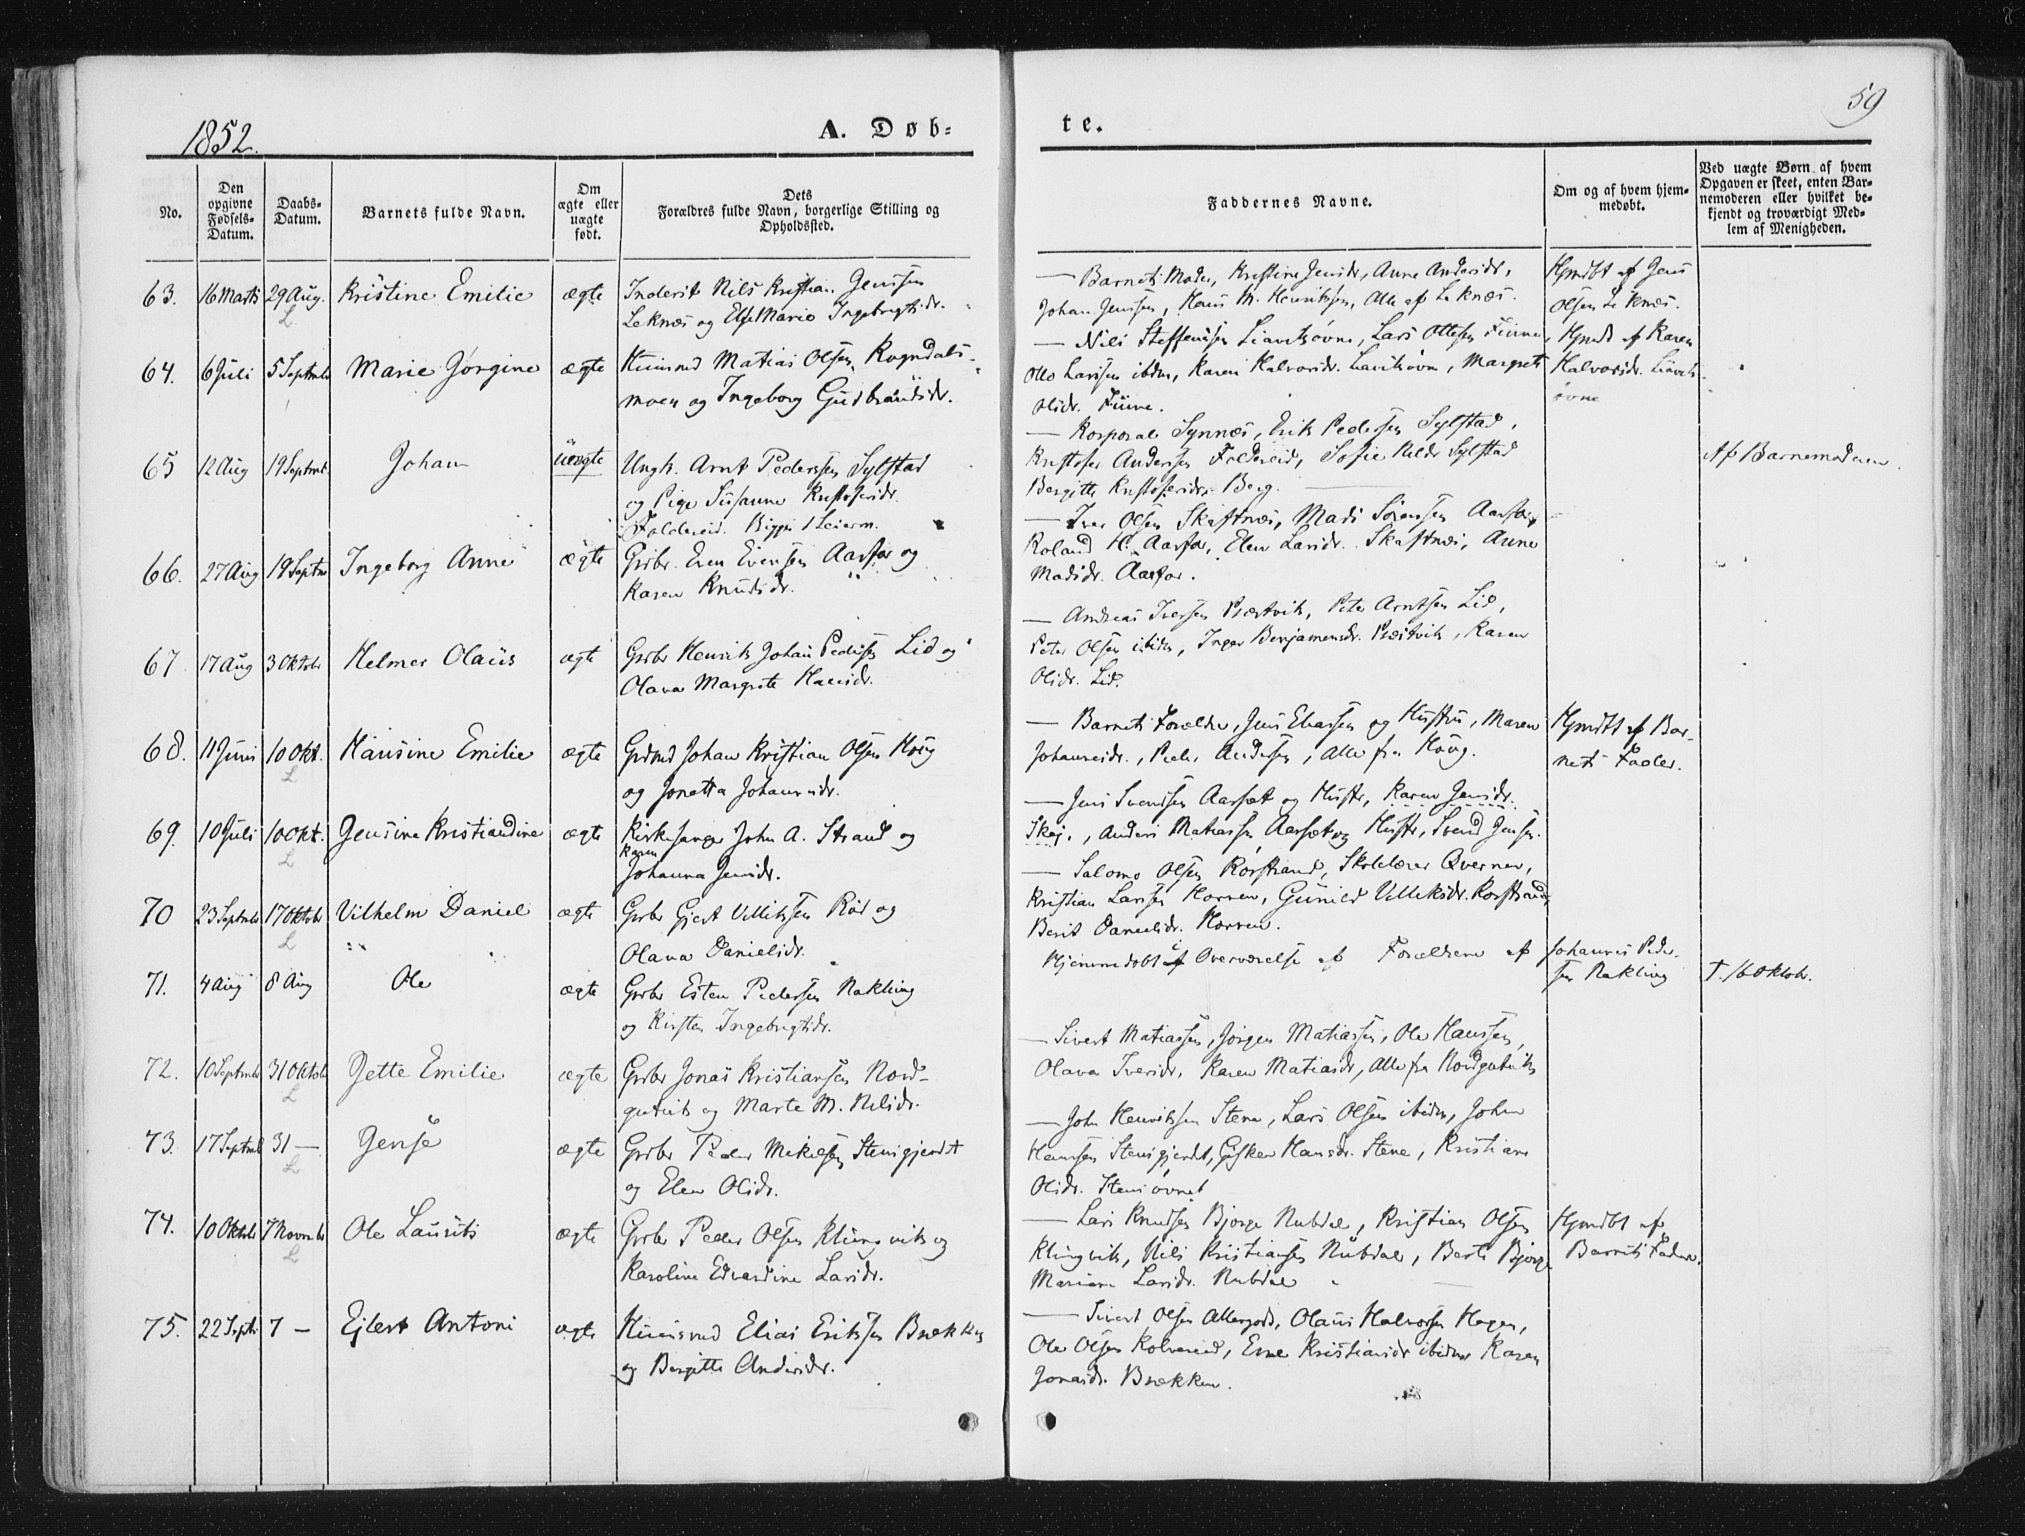 59
1852.
A. Døb-
te.
No.
Den opgivne Fødsels-Datum.
Daabs-Datum.
Barnets fulde Navn.
Om ægte eller uægte født.
Dets Forældres fulde Navn, borgerlige Stilling og Opholdssted.
Faddernes Navne.
Om og af hvem hjem-medøbt.
Ved uægte Børn af hvem Opgaven er skeet, enten Bar-nemoderen eller hvilket be-kjendt og troværdigt Med-lem af Menigheden.
63. 16 Marts 29 Aug. Kristine Emilie ægte Inderst Nils Kristian Jenssen
Leknæs og Else Marie Ingebrigtsdr.
— Barnets Moder, Kristine Jensdr, Anne Andersdr,
Johan Jenssen, Hans M. Henriksen, Alle af Leknæs.
Hjmdbt af Jens
Olsen Leknæs.
64. 6 Juli 5 Septmbr Marie Jørgine ægte Huusmd Matias Olsen Kogndals-
moen og Ingeborg Gudbrandsdr.
— Nils Steffensen Liavitsøvne, Lars Ottesen Finne,
Otto Larssen ibidm, Karen Halvorsdr. Liavitsøvn, Margrete
Olsdr. Finne.
Hjmdt af Karen
Halvorsdr. Liavits-
øvne
65 12 Aug 19 Septmbr Johan uægte Ungk. Arnt Pederssen Sylstad
og Pige Susanne Kristofersdr.
Foldereid. Begges 1 Leierm.
— Korporal Synnes, Erik Pedersen Sylstad,
Kristofer Anderssen Foldereid, Sofie Nilsdr Sylstad
Bergitte Kristofersdr. Berg.
Af Barnemoderen.
66. 27 Aug 19 Septmbr Ingeborg Anne ægte Grbr. Even Evensen Aarfor og
Karen Knudsdr.
— Iver Olsen Skaftnæs, Mads Sørensen Aarfor,
Roland H. Aarfor, Elen Larsdr. Skaftnæs, Anne
Madsdr. Aarfor.
67. 17 Aug 3 Oktobr Helmer Olaus ægte Grbr Henrik Johan Pedersen Lid og
Olava Margrete Hansdr.
— Andreas Iversen Præstvik, Peter Arntsen Lid,
Peter Olsen ibidm, Inger Benjamensdr. Præstvik, Karen
Olsdr. Lid.
68. 11 Juni 10 Okt. Hansine Emilie ægte Grdmd Johan Kristian Olsen Haug
og Jonetta Johannesdr.
— Barnets Forældre, Jens Eliassen og Hustru, Maren
Johannesdr., Peder Andersen, Alle fra Haug.
Hjmdbt af Bar-
nets Fader.
69. 10 Juli 10 Okt. Jensine Kristiandine ægte Kirkesanger John A. Strand og
Karen
Johanna Jensdr.
— Jens Svendsen Aarsæt og Hustr, Karen Jensdr.
Skej., Anders Matiassen Aarsæt og Hustr, Svend Jenssen.
70 23 Septmbr 17 Oktobr Vilhelm Daniel ægte Grbr Gjert Villiksen Rød og
Olava Danielsdr.
— Salomo Olsen Korstrand, Skolelærer Qvernen,
Kristian Larsen Horsen, Gunild Villiksdr. Korstrand,
Berit Danielsdr. Horsen.
71. 4 Aug 8 Aug Ole ægte Grbr Esten Pedersen Nakling
og Kirsten Ingebrigtsdr.
Hjemmedøbt i Overværelse af Forældrene af Johannes Peder-
sen Nakling
T. 16 Oktobr.
72. 10 Septmbr 31 Oktobr Jette Emilie ægte Grbr Jonas Kristiansen Nord-
gutvik og Marte M. Nilsdr.
— Sivert Matiassen, Jørgen Matiassen, Ole Hanssen,
Olava Iversdr, Karen Matiasdr, Alle fra Nordgutvik
73. 17 Septmbr 31 — Jense ægte Grbr Peder Mikelsen Stensgjerdet
og Elen Olsdr.
— John Henriksen Stene, Lars Olsen ibidm, Johan
Hansen Stensgjerdet, Gisken Hansdr. Stene, Kristiane
Olsdr. Stensøvnet
74. 10 Oktobr 7 Novmbr Ole Laurits ægte Grbr Peder Olsen Klingvik og
Karoline Edvardine Larsdr.
— Lars Knudsen Bjørge Nubdal, Kristian Olsen
Klingvik, Nils Kristiansen Nubdal, Berte Bjørge
Mariane Larsdr. Nubdal
Hjmdbt af
Barnets Fader.
75. 22 Septr 7 — Ejlert Antoni ægte Huusmd Elias Eriksen Brækken
og Bergitte Andersdr.
— Sivert Olsen , Olaus Halvorsen Hagen,
Ole Olsen Kolvereid, Erne Kristiansdr ibidm Karen
Jonasdr. Brækken.